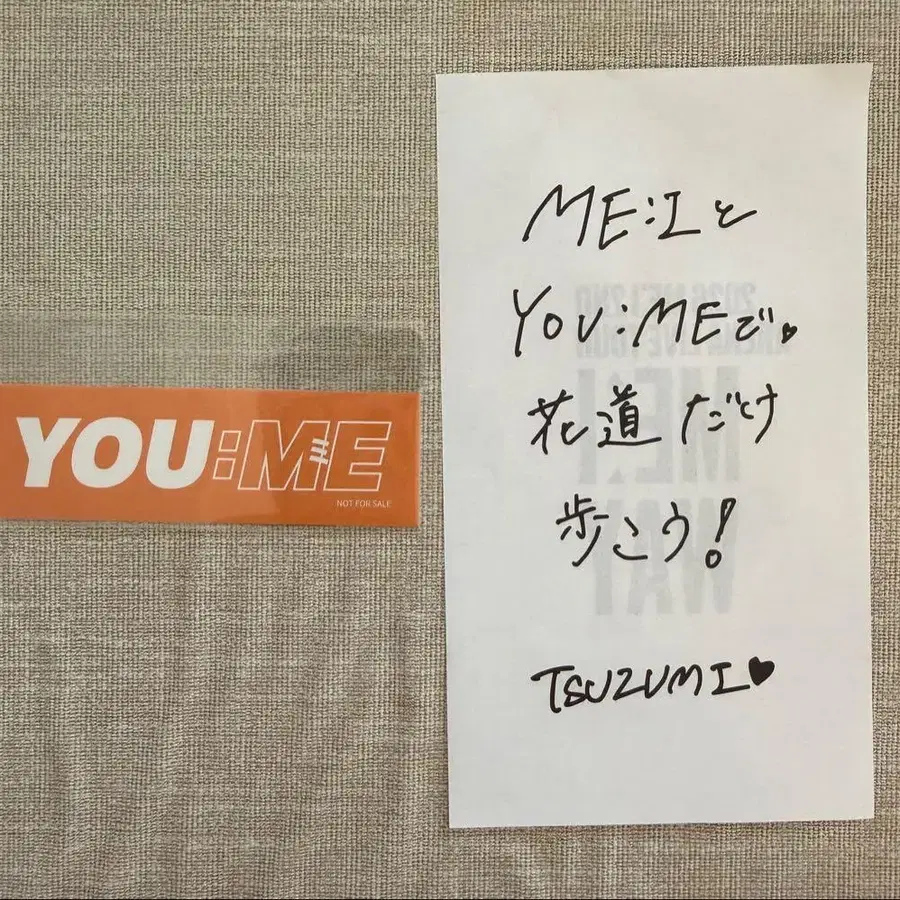 YOU:ME
NOT FOR SALE
ME:Iと
YOU:MEで♥
花道だけ
歩こう!
TSUZUMI♥